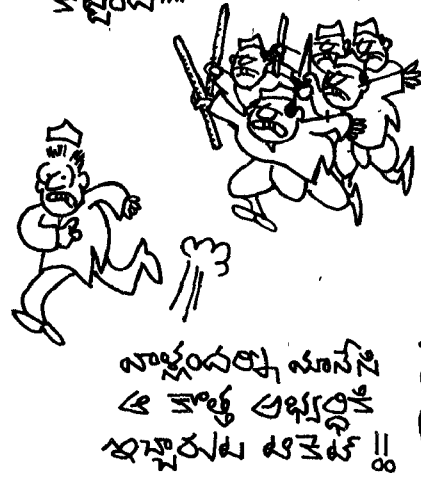 వాళ్లందర్నీ మానేసి
ఆ కొత్త అభ్యర్థికే
ఇచ్చారుట టికెట్ !!